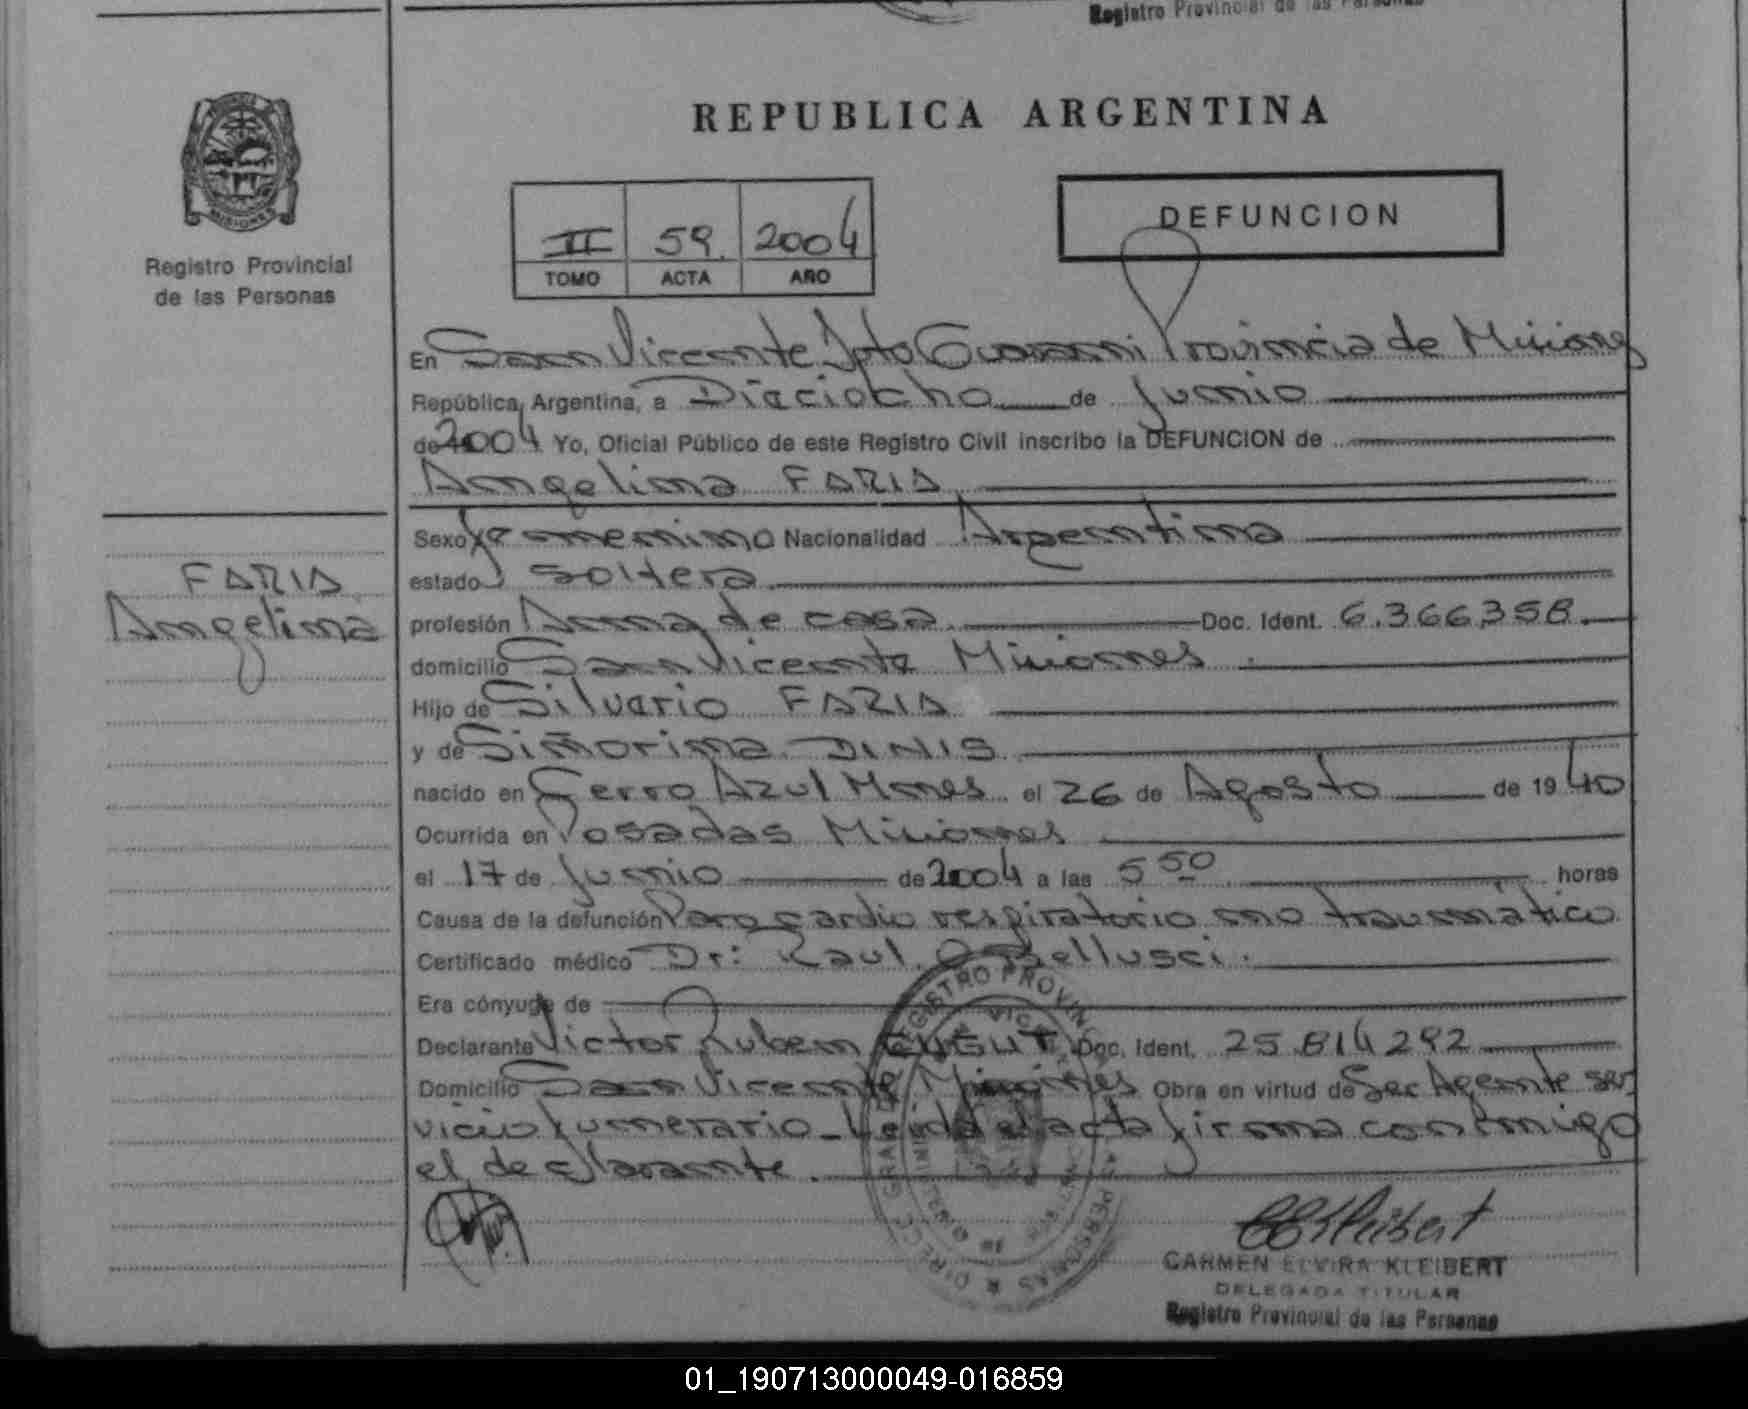 Registro Provincial de las Personas
REPUBLICA ARGENTINA
MISIONES
Registro Provincial
de las Personas
II 59. 2004
TOMO ACTA AÑO
DEFUNCION
En San Vicente Dpto Guarani Provincia de Misiones
República Argentina, a Dieciocho de Junio
de 2004 Yo, Oficial Público de este Registro Civil inscribo la DEFUNCION de
Angelina FARIA
Sexo femenino Nacionalidad Argentina
FARIA
Angelina
estado soltera
profesión Ama de casa Doc. Ident. 6.366,358.
domicilio San Vicente Misiones
Hijo de Silvario FARIA
y de Siñorina DINIS
nacido en Cerro Azul Mnes el 26 de Agosto de 1940
Ocurrida en Posadas Misiones
el 17 de Junio de 2004 a las 5 50 horas
Causa de la defunción Paro cardio respiratorio no traumático
Certificado médico Dr: Raul O Bellusci.
Era cónyuge de
Declarante Victor Ruben Doc. Ident. 25.814292
Domicilio San Vicente Misiones Obra en virtud de Ser Agente ser
vicio funerario - Leida el acta firma conmigo
el declarante.
CARMEN ELVIRA KLEIBERT
DELEGADA TITULAR
Registro Provincial de las Personas
01_190713000049-016859